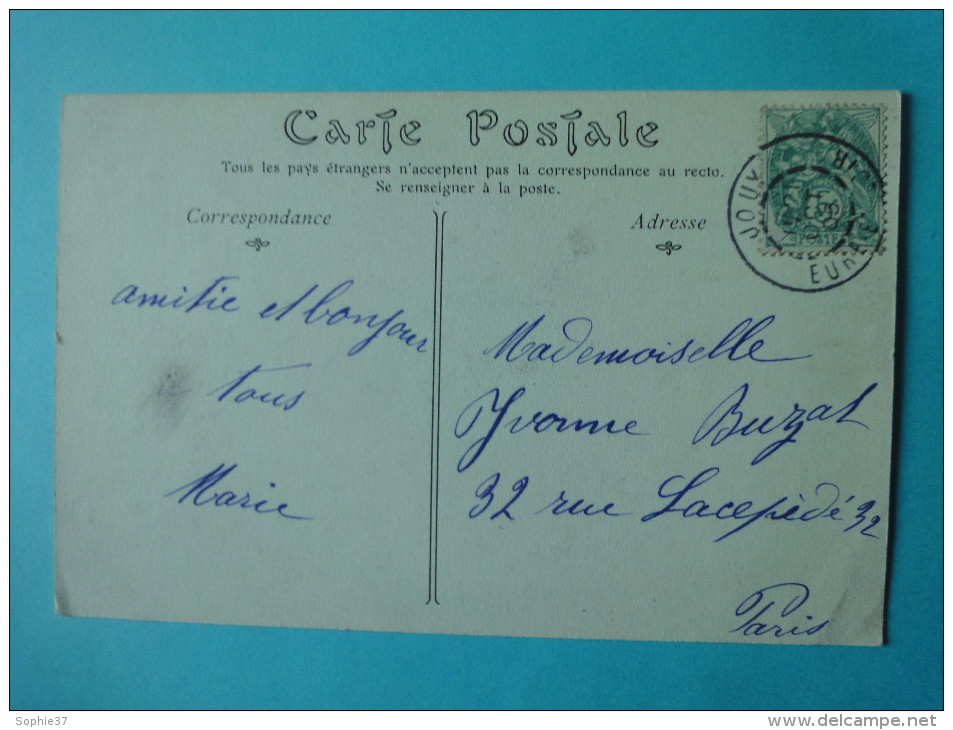 Carte Postale
Tous les pays étrangers n'acceptent pas la correspondance au recto.
Se renseigner à la poste.
Correspondance
Adresse
amitie et bonjour
tous
Marie
Mademoiselle
Yvonne Buzat
32 rue Lacepèdé 32
Paris
JOUY
EURE
POSTES
Sophie37
www.delcampe.net